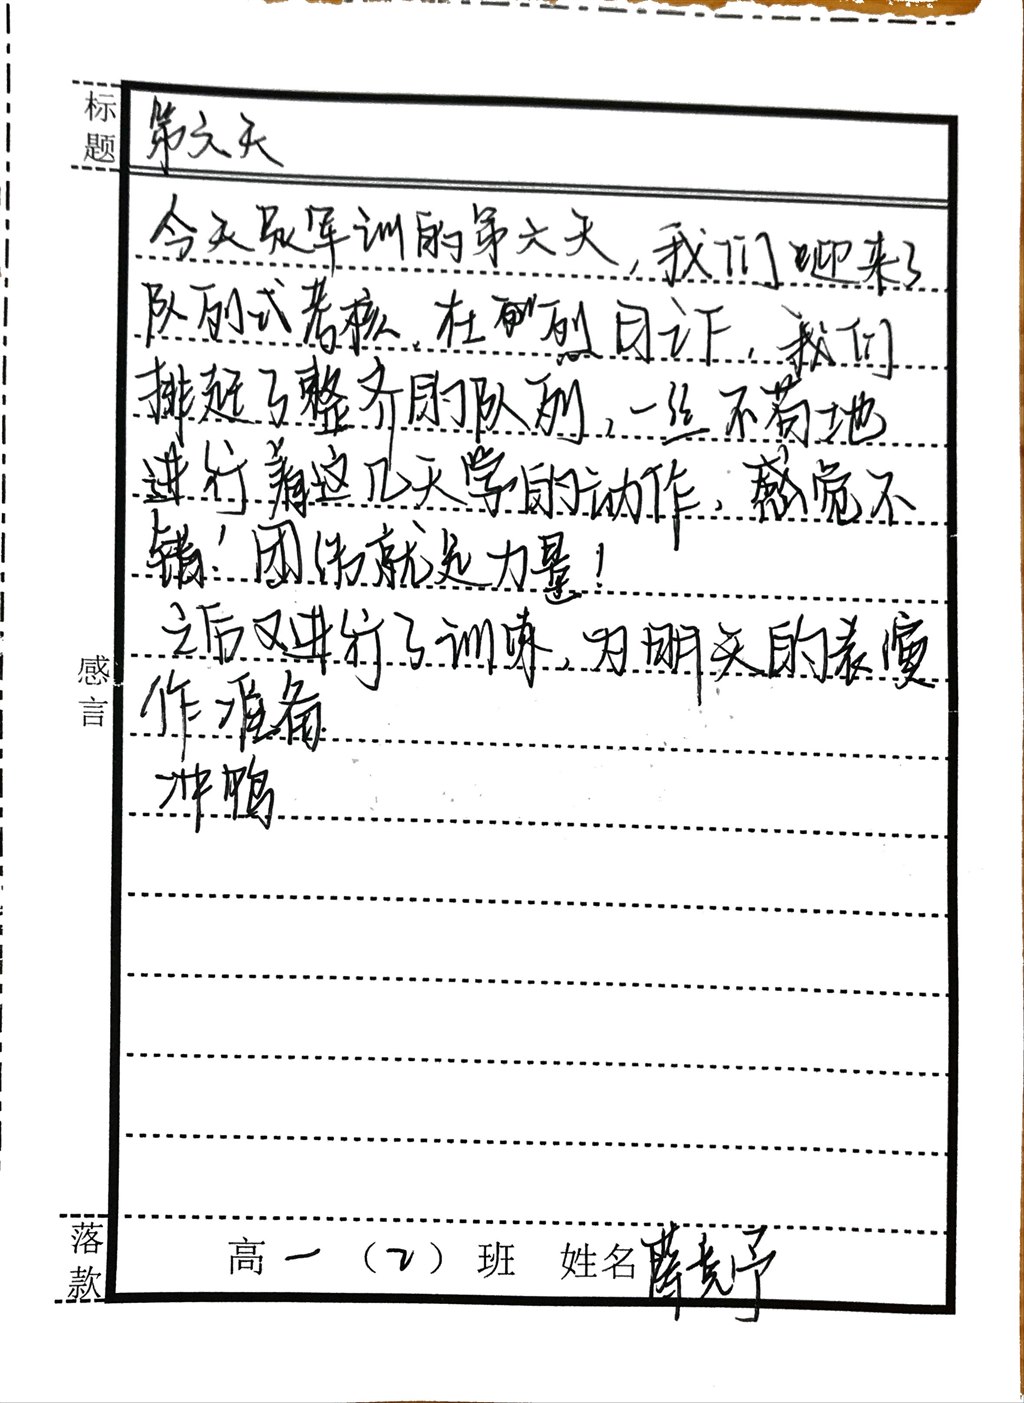 标题
第六天
今天是军训的第六天，我们迎来了
队列式考核，在烈日下，我们
排起了整齐的队列，一丝不苟地
进行着这几天学的动作，感觉不
错！团体就是力量！
之后又进行了训练，为明天的表演
作准备
冲鸭
感言
落款
高一（2）班 姓名